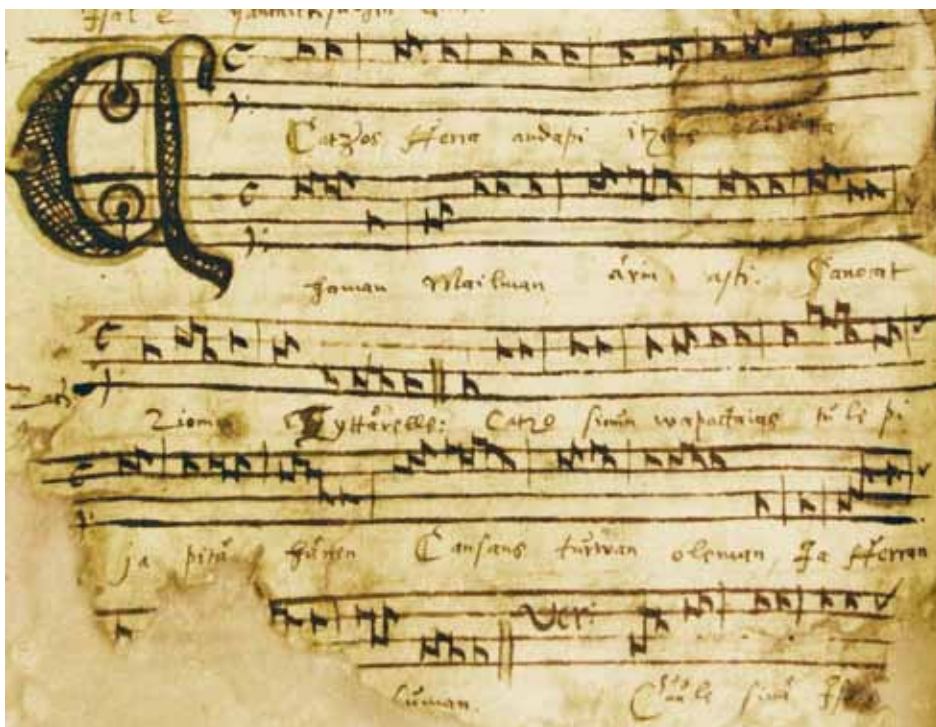 Catzos Herra andapi itzens
haman Mailman ärin asti. Sanocat
Zionin tyttärelle: Catzo sinun wapactaias tule pi
ja pitä hänen Cansans turwan oleman, Ja Herran
luman. Ver: Cuule sinä